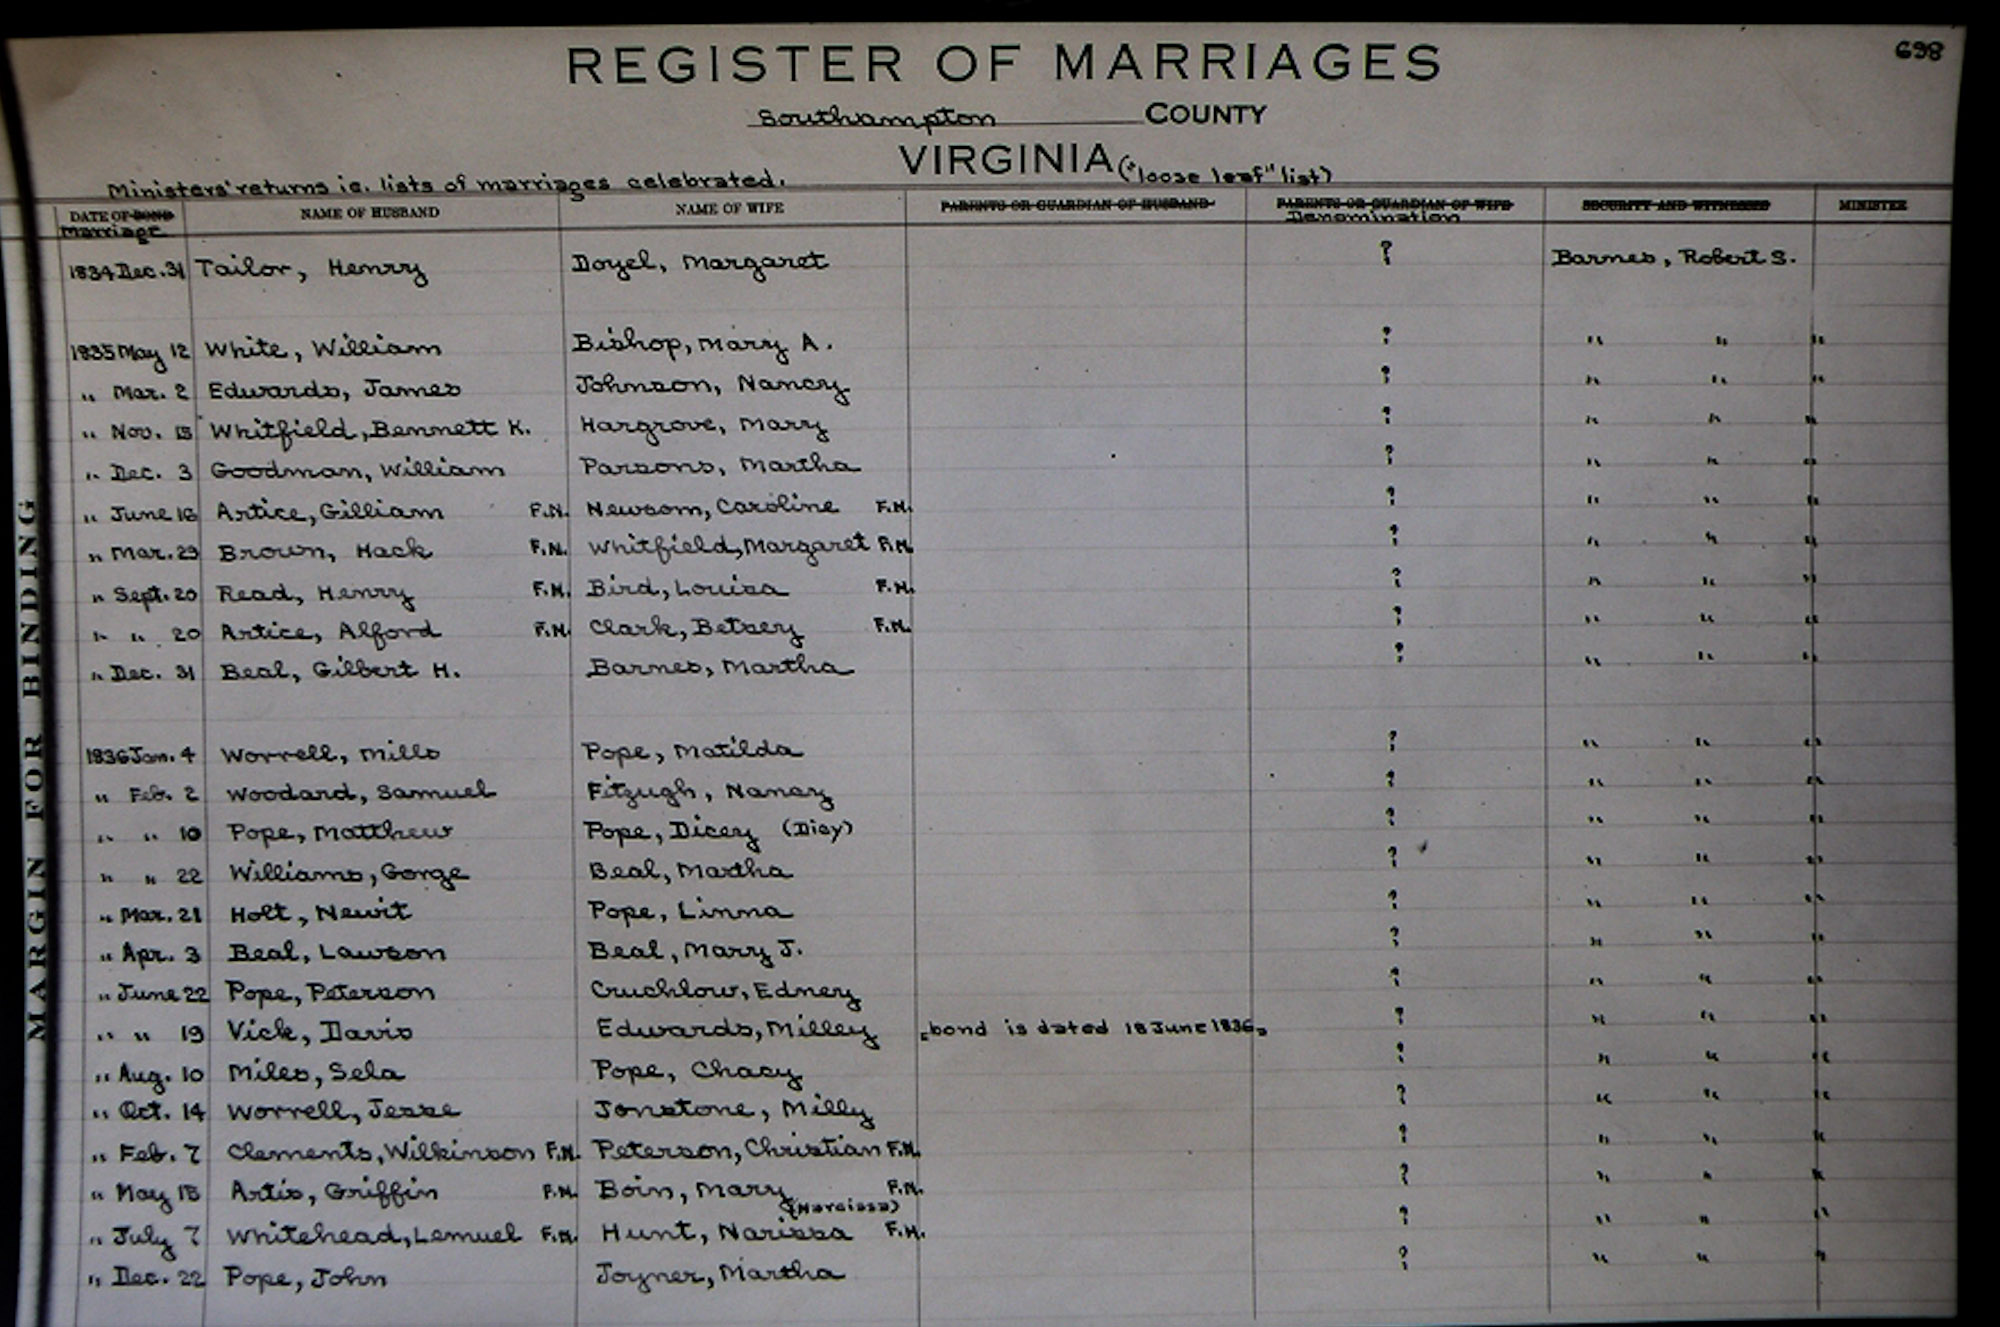 698
REGISTER OF MARRIAGES
Southampton COUNTY
VIRGINIA ("loose leaf" list)
Ministers' returns ie. lists of marriages celebrated.
DATE OF BOND NAME OF HUSBAND NAME OF WIFE PARENTS OR GUARDIAN OF HUSBAND PARENTS OR GUARDIAN OF WIFE SECURITY AND WITNESSES MINISTER
Marriage Denomination
1834 Dec. 31 Tailor, Henrry Doyel, Margaret ? Barnes, Robert S.
1835 May 12 White, William Bishop, Marry A. ? " " "
" Mar. 2 Edwards, James Johnson, Nancy ? " " "
" Nov. 15 Whitfield, Bennett K. Hargrove, Marry ? " " "
" Dec. 3 Goodman, William Parsons, Martha ? " " "
" June 16 Artice, Gilliam F.N. Newsom, Caroline F.N. ? " " "
" Mar. 29 Brown, Hack F.N. Whitfield, Margaret F.N. ? " " "
" Sept. 20 Read, Henry F.N. Bird, Louisa F.N. ? " " "
" " 20 Artice, Alford F.N. Clark, Betsey F.N. ? " " "
" Dec. 31 Beal, Gilbert H. Barnes, Martha ? " " "
1836 Jan. 4 Worrell, Mills Pope, Matilda ? " " "
" Feb. 2 Woodard, Samuel Fitzugh, Nancy ? " " "
" " 10 Pope, Matthew Pope, Dicey (Dicy) ? " " "
" " 22 Williams, Gorge Beal, Martha ? " " "
" Mar. 21 Holt, Newit Pope, Linna ? " " "
" Apr. 3 Beal, Lawson Beal, Mary J. ? " " "
" June 22 Pope, Peterson Cruchlow, Edney ? " " "
" " 19 Vick, Davis Edwards, Milley [bond is dated 18 June 1836] ? " " "
" Aug. 10 Miles, Sela Pope, Chacy ? " " "
" Oct. 14 Worrell, Jesse Jonstone, Milly ? " " "
" Feb. 7 Clements, Wilkinson F.N. Peterson, Christian F.N. ? " " "
" May 15 Artis, Griffin F.N. Boin, Mary F.N. ? " " "
(Narcissa)
" July 7 Whitehead, Lemuel F.N. Hunt, Narissa F.N. ? " " "
" Dec. 22 Pope, John Joyner, Martha ? " " "
MARGIN FOR BINDING